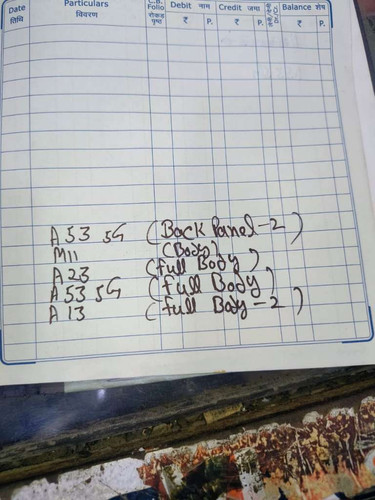 Date Particulars C.B. Folio Debit नाम Credit जमा Dr./Cr. Balance शेष
तिथि विवरण रोकड़ पृष्ठ ₹ P. ₹ P. ₹ P.
A 53 5G (Back Panel-2)
M11 (Body)
A 23 (full Body)
A 53 5G (full Body)
A 13 (full Body - 2)